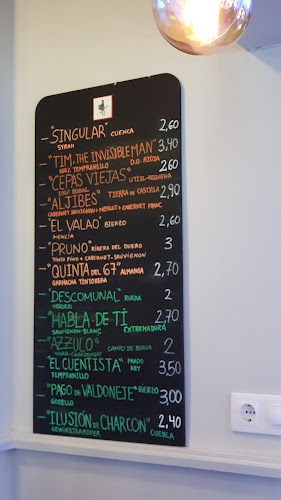 - "SINGULAR" CUENCA 2,60
SYRAH
- "TIM, THE INVISIBLE MAN" 3,40
100% TEMPRANILLO D.O. RIOJA
- "CEPAS VIEJAS" UTIEL-REQUENA 2,60
100% BOBAL
- "ALJIBES" TIERRA DE CASTILLA 2,90
CABERNET SAUVIGNON + MERLOT + CABERNET FRANC
- "EL VALAO" BIERZO 2,60
MENCÍA
- "PRUNO" RIBERA DEL DUERO 3
TINTO FINO + CABERNET-SAUVIGNON
- "QUINTA DEL 67" ALMANSA 2,70
GARNACHA TINTORERA
- "DESCOMUNAL" RUEDA 2
VERDEJO
- "HABLA DE TÍ 2,70
SAUVIGNON-BLANC EXTREMADURA
- "AZZULO" CAMPO DE BORJA 2
CHARDONNAY
- "EL CUENTISTA" PRADO REY 3,50
TEMPRANILLO
- "PAGO DE VALDONETE" BIERZO 3,00
GODELLO
- "ILUSIÓN DE CHARCON" 2,40
GEWÜRZTRAMINER CUENCA